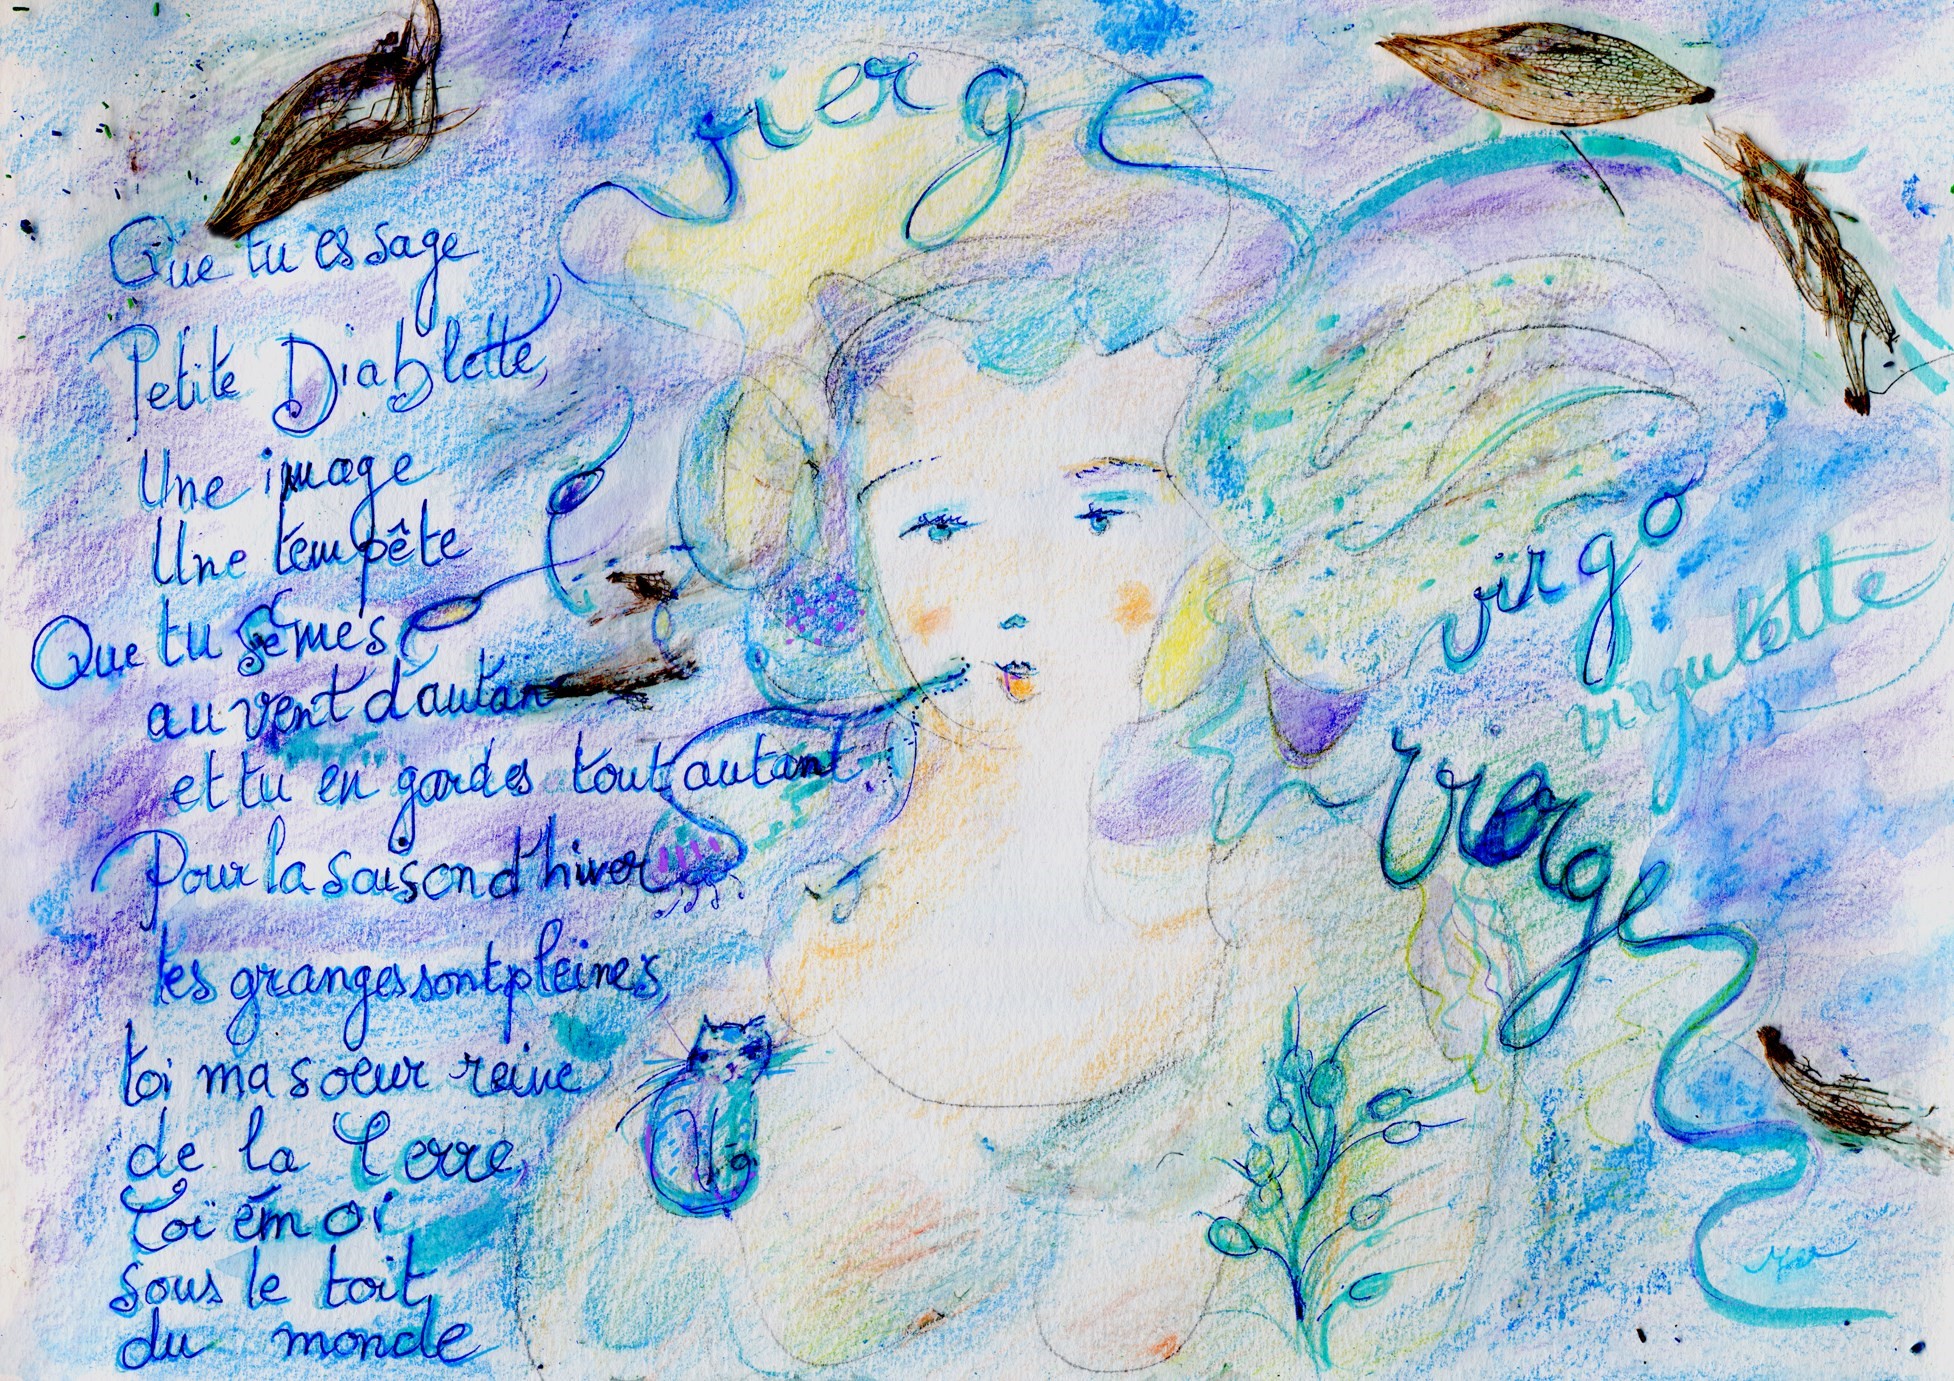 vierge
Que tu es sage
Petite Diablette,
Une image
Une tempête
Que tu sèmes
au vent d'autan
et tu en gardes tout autant
Pour la saison d'hiver
tes granges sont pleines,
toi ma soeur reine
de la Terre,
Toï émoi
sous le toit
du monde
virgo
virgulette
Vierge